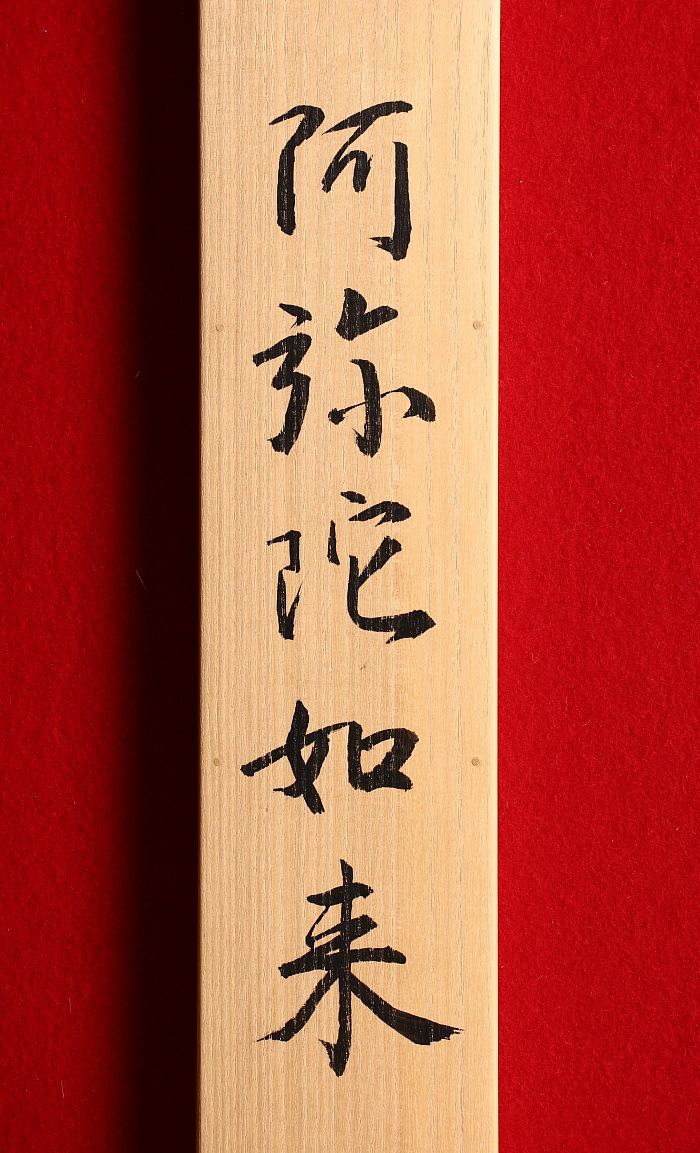 阿弥陀如来